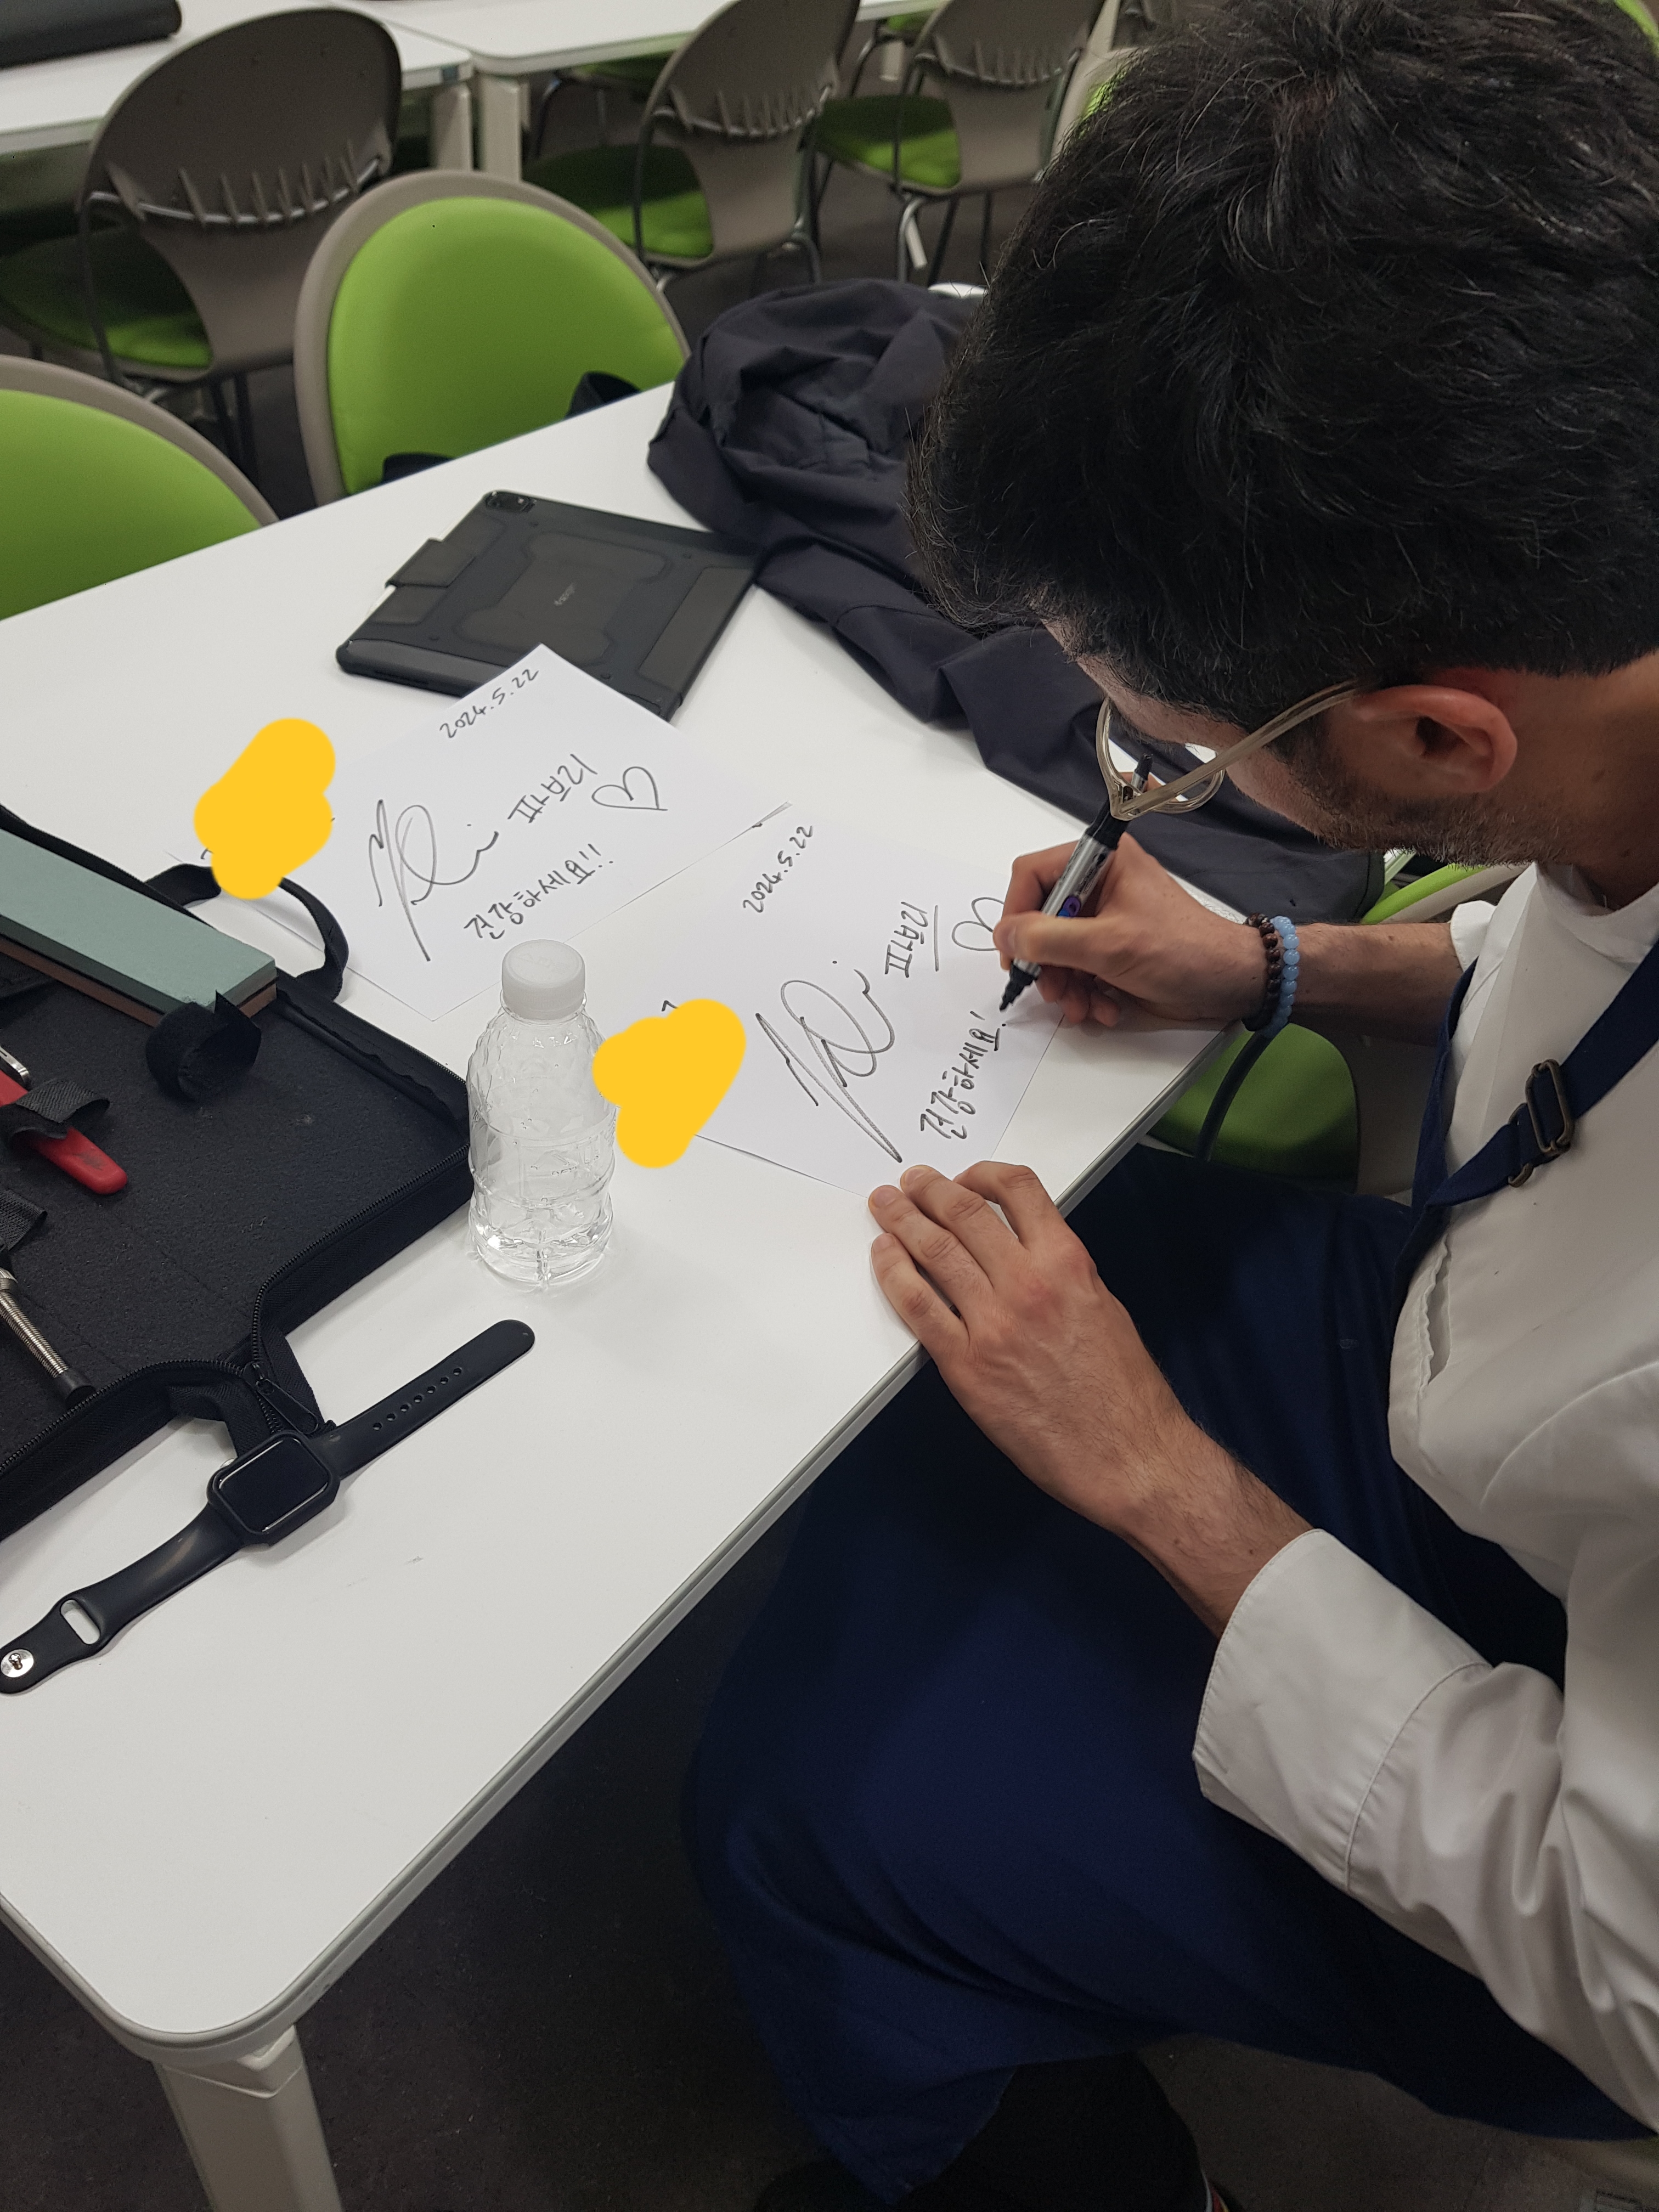 2024.5.22
파브리
건강하세요!!
2024.5.22
파브리
건강하세요!